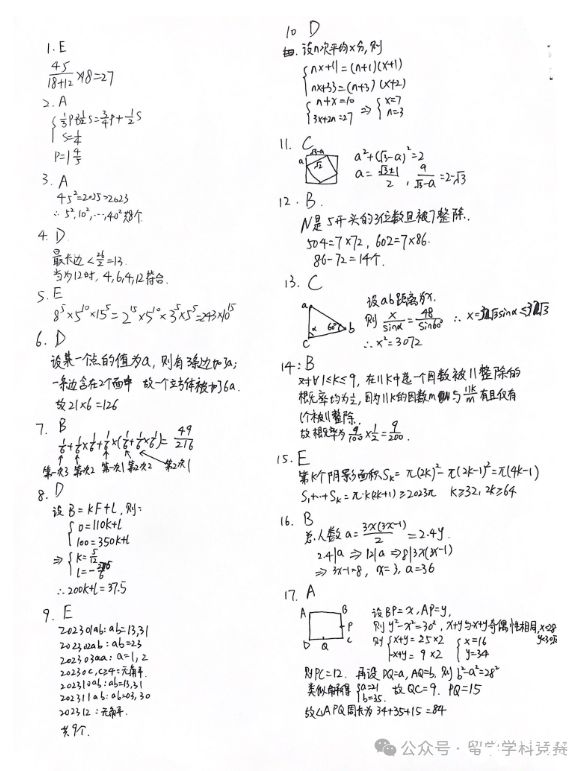 1. E
45/(18+12) ×18=27
2. A
1/3P+1/2S=3/4P+1/2S
S=1/4
P=1 4/5
3. A
45²=2025>2023
∴5²,10²,…,40²共8个
4. D
最长边<26/2=13.
当为12时, 4,6,4,12符合.
5. E
8⁵×5¹⁰×15⁵=2¹⁵×5¹⁰×3⁵×5⁵=243×10¹⁵
6. D
设某一个点的值为a, 则有3条边加3a;
一条边含在2个面中 故一个立方体被加6a.
故21×6=126
7. B
1/6+1/6×1/6+1/6×(1/6+1/6×1/6)=49/216
第一次3 第一次2 第一次1 第二次2 第二次1
8. D
设B=kF+l, 则:
0=110k+l
100=350k+l
⇒ k=5/12
∴200k+l=37.5
9. E
202301ab: ab=13,31
202302ab: ab=23
202303aa: a=1,2
202310ab: ab=13,31
202311ab: ab=03,30
202312:
共9个.
10 D
设n次平均x分, 则
nx+11=(n+1)(x+1)
nx+33=(n+3)(x+2)
n+x=10
3x+2n=27 ⇒ x=7
n=3
11. C
a²+(√3-a)²=2
a=(√3+1)/2, a/(√3-a)=2+√3
12. B.
N是5开头的3位数且被7整除.
504=7×72, 602=7×86.
86-72=14个.
13. C
设ab距离为x.
a
c
b
60°
则 x/sinα=48/sin60° ∴x=32√3sinα≤32√3
∴x²=3072
14: B
对∀1≤k≤9, 在11k中选一个因数被11整除的
概率均为1/2, 因为11k的因数m与11k/m有且仅有
1个被11整除.
故概率为9/100×1/2=9/200.
15. E
第k个阴影面积Sk=π(2k)²-π(2k-1)²=π(4k-1)
S1+…+Sk=π·k(2k+1)≥2023π k≥32, 2k≥64
16. B
总人数a=3x(3x-1)/2=2.4y.
2.4|a ⇒12|a ⇒8|3x(3x-1)
⇒3x-1=8, x=3, a=36
17. A
A B
P
D Q C
设BP=x, AP=y,
则y²-x²=30², x+y与x-y奇偶性相同, x=28
则 x+y=25×2
-x+y=9×2
x=16
y=34
则PC=12. 再设DQ=a, AQ=b, 则b²-a²=28²
a=21
b=35. 故QC=9. PQ=15
故△APQ周长为34+35+15=84
公众号·留学学科竞赛